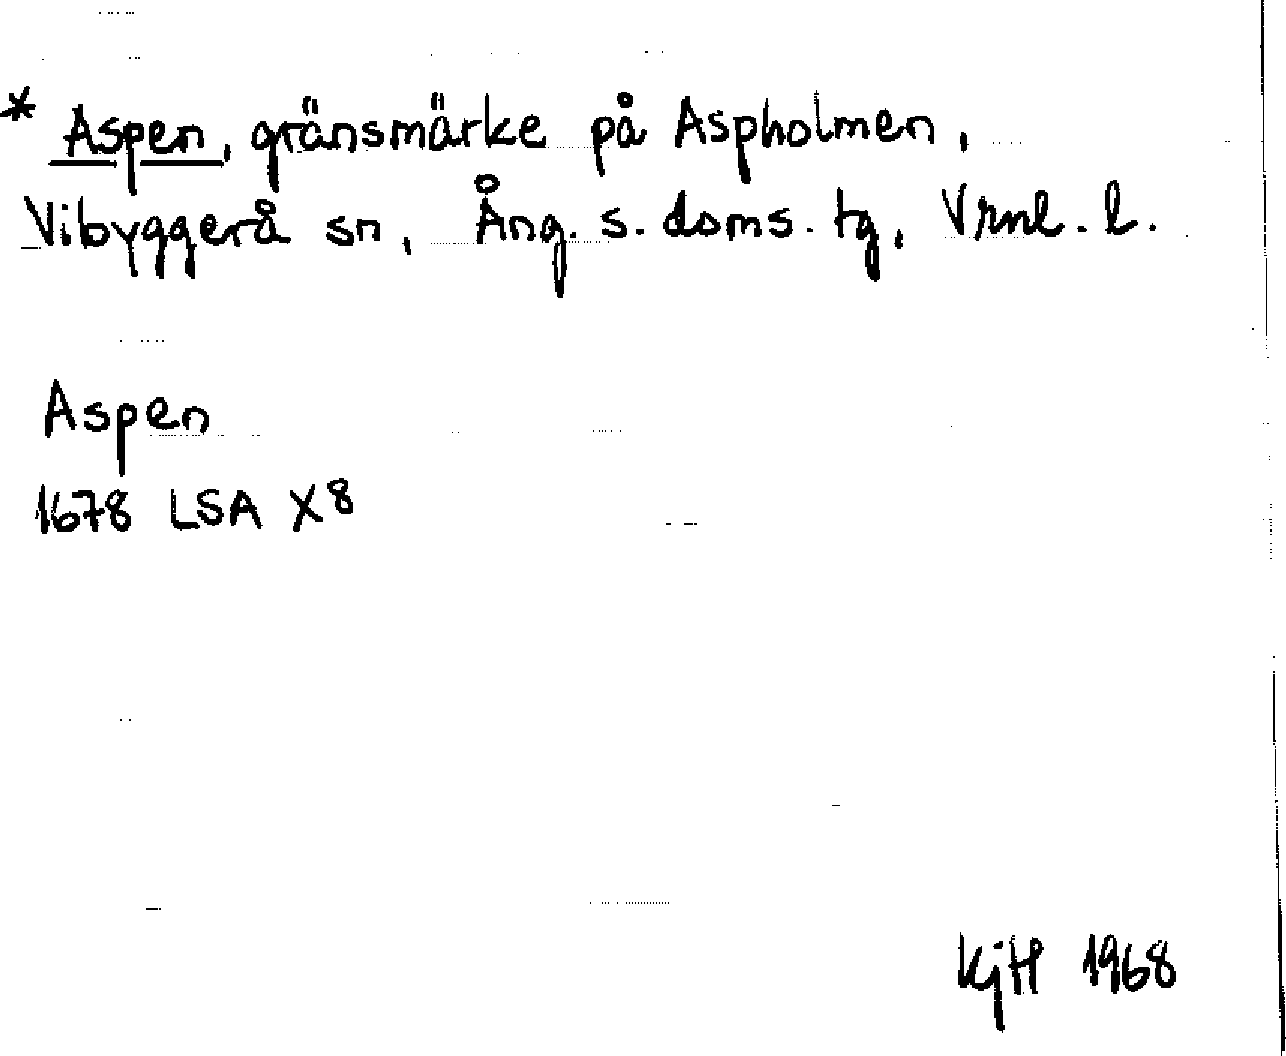 * Aspen, gränsmärke på Aspholmen,
Vibyggerå sn, Ång. s. doms. tg, Vrnl. l.
Aspen
1678 LSA X8
KjH 1968